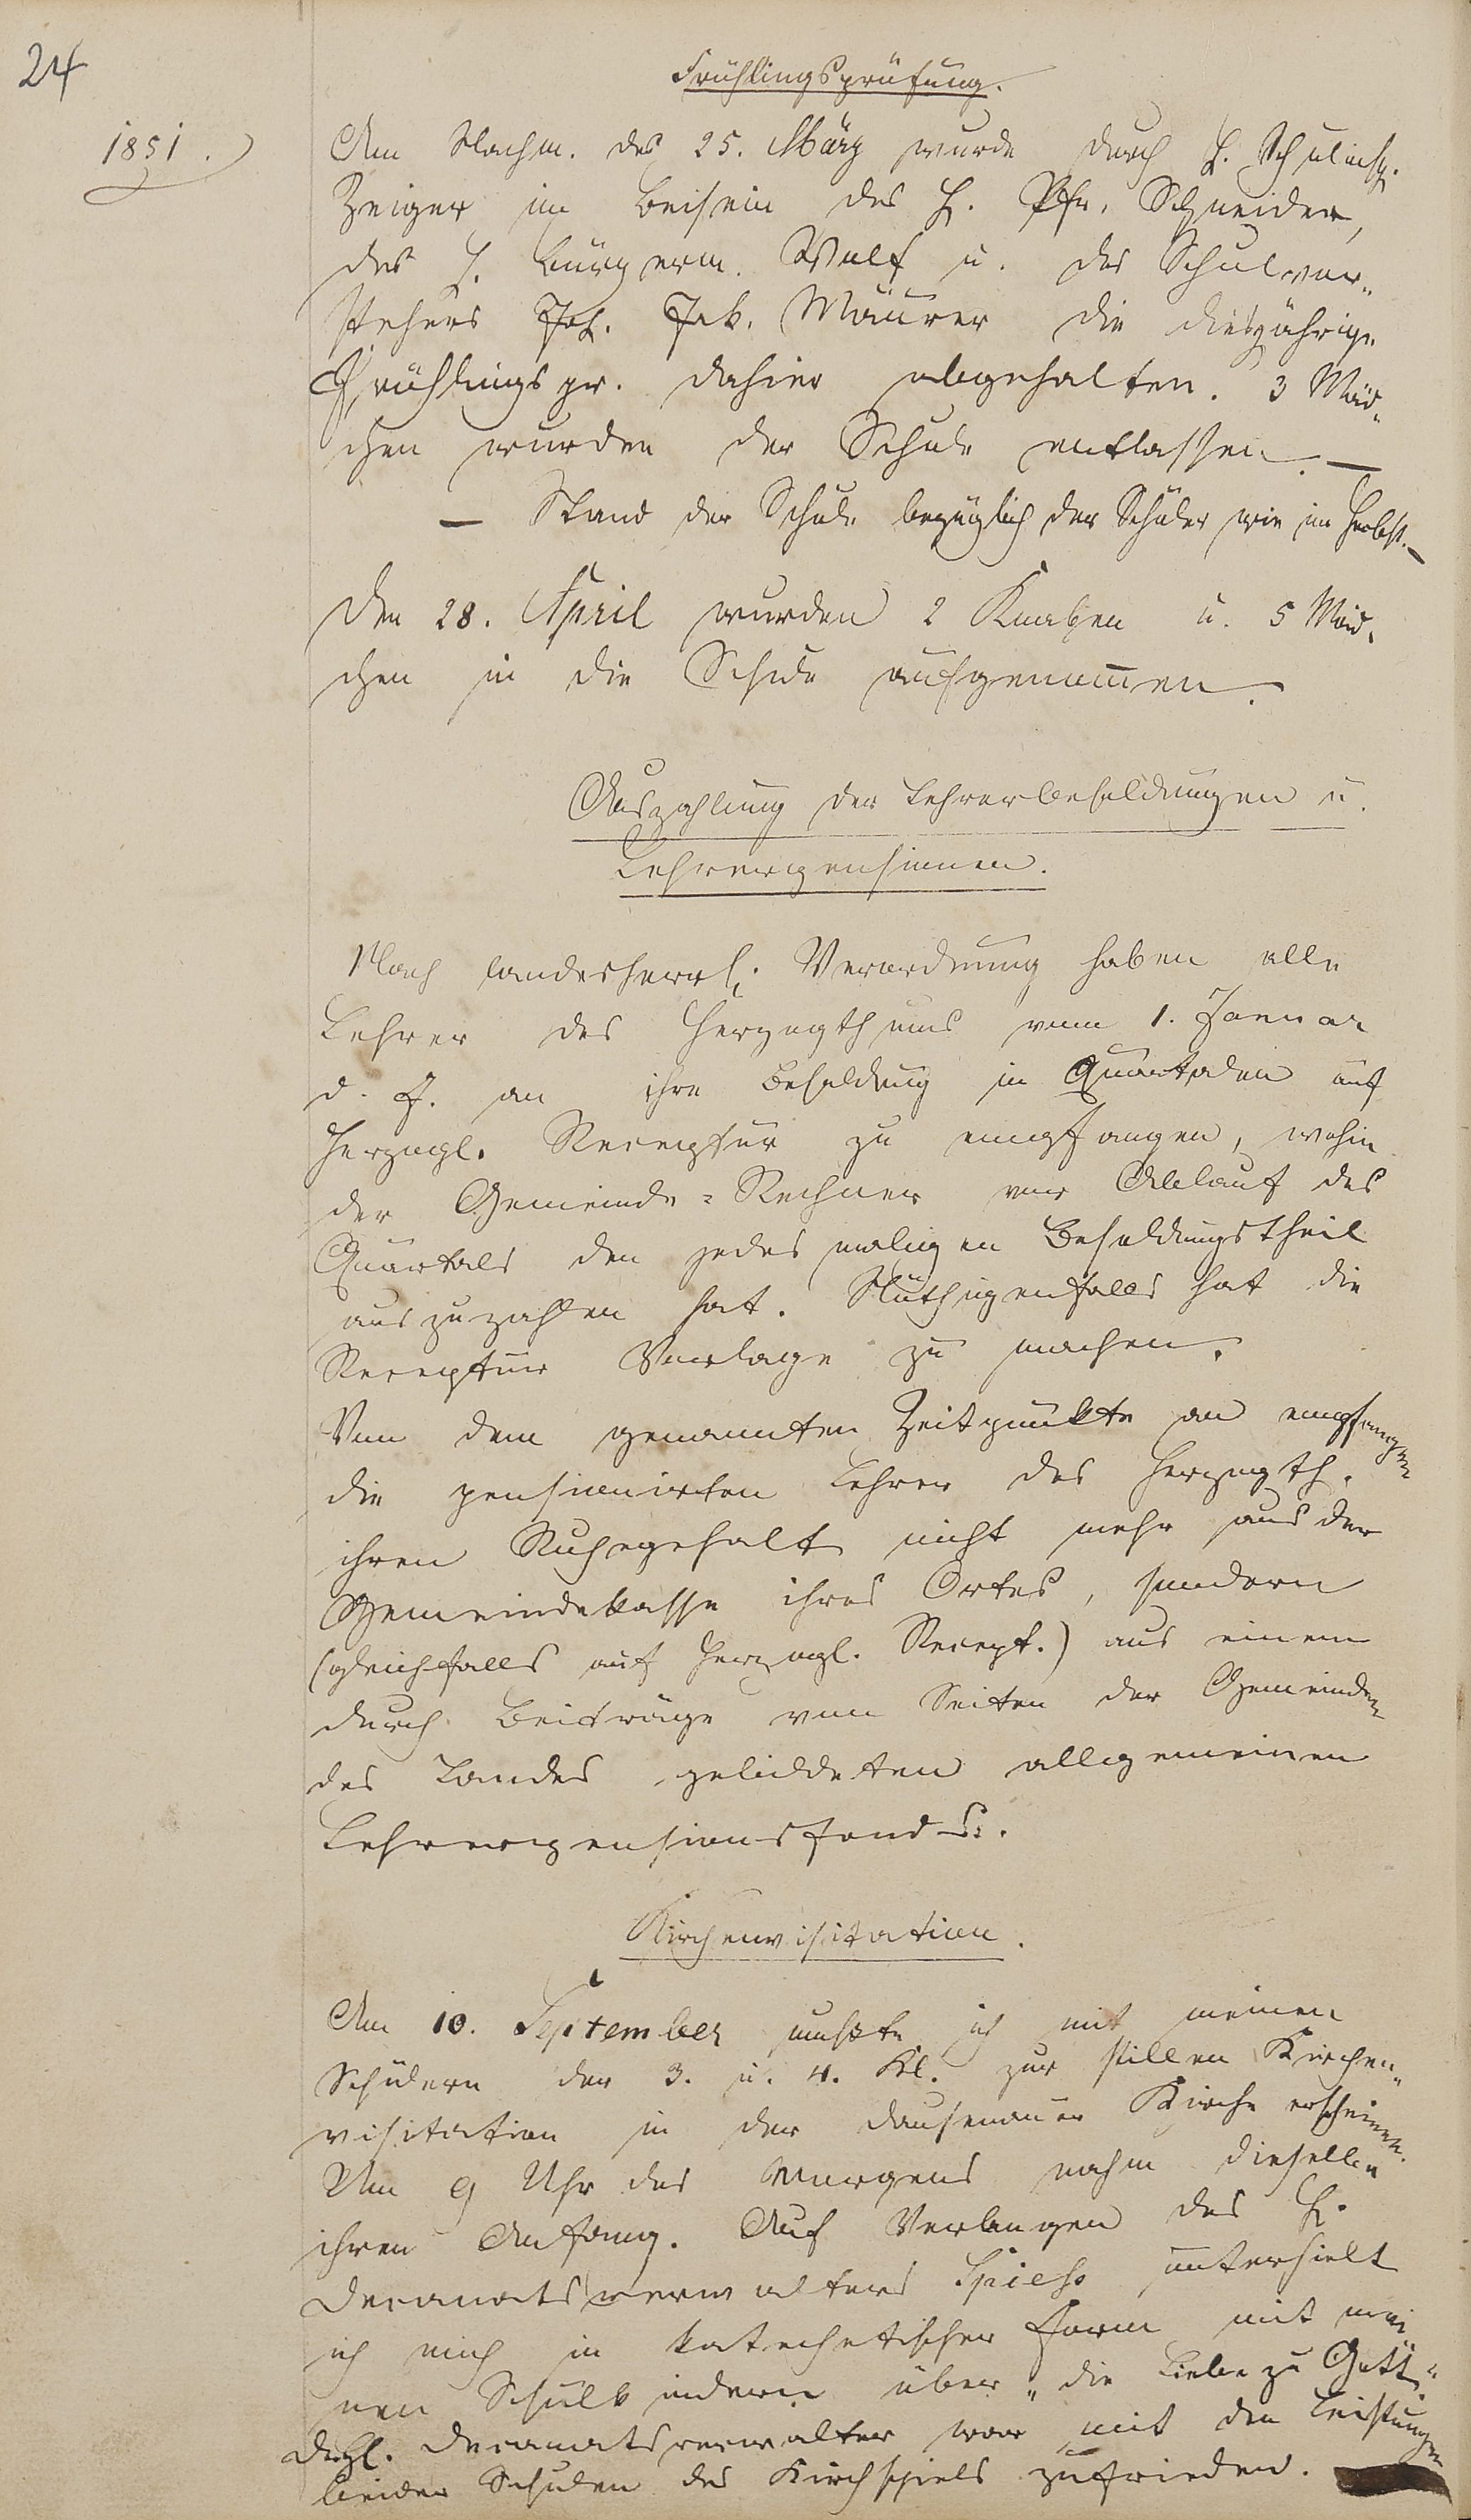 24
Frühlingsprüfung.
1851.
Am Nachm. des 25. März wurde durch H. Schulinsp.
Zeiger im Beisein des H. Pfr. Schneider,
des H. Bürgerm. Wolf u. des Schulvor-
stehers Joh. Jak. Maurer die diesjährige
Frühlingspr. dahier abgehalten. 3 Mäd-
chen wurden der Schule entlassen. —
— Stand der Schule bezüglich der Schüler wie im Herbst. —
Den 28. April wurden 2 Knaben u. 5 Mäd-
chen in die Schule aufgenommen.
Auszahlung der Lehrerbesoldungen u.
Lehrerpensionen.
Nach landesherrl. Verordnung haben alle
Lehrer des Herzogthums vom 1. Januar
d. J. an ihre Besoldung in Quartalen auf
Herzogl. Receptur zu empfangen, wohin
der Gemeinde-Rechner vor Ablauf des
Quartals den jedesmaligen Besoldungstheil
auszuzahlen hat. Nöthigenfalls hat die
Receptur Vorlage zu machen.
Von dem genannten Zeitpunkte an empfangen
die pensionirten Lehrer des Herzogth.
ihren Ruhegehalt nicht mehr aus der
Gemeindekasse ihres Ortes, sondern
(gleichfalls auf Herzogl. Recept.) aus einem
durch Beiträge von Seiten der Gemeinden
des Landes gebildeten allgemeinen
Lehrerpensionsfonds.
Kirchenvisitation.
Am 10. September mußte ich mit meinen
Schülern der 3. u. 4. Kl. zur stillen Kirchen-
visitation in der Dausenauer Kirche erscheinen.
Um 9 Uhr des Morgens nahm dieselbe
ihren Anfang. Auf Verlangen des H.
Decanatsverwalters Spieß unterhielt
ich mich in katechetischer Form mit mei-
nen Schulkindern über „die Liebe zu Gott."
Decanatsverwalter war mit den Leistungen
beider Schulen des Kirchspiels zufrieden.